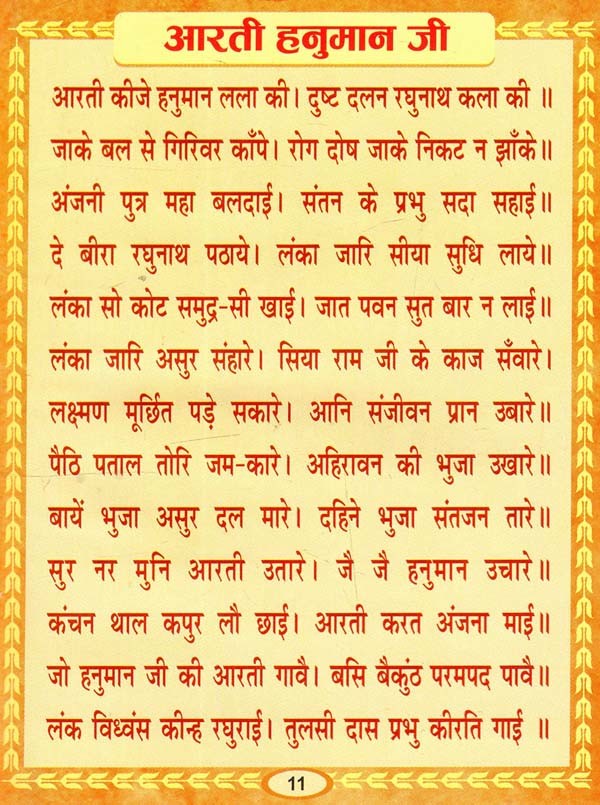 आरती हनुमान जी
आरती कीजे हनुमान लला की। दुष्ट दलन रघुनाथ कला की ॥
जाके बल से गिरिवर काँपे। रोग दोष जाके निकट न झाँके॥
अंजनी पुत्र महा बलदाई। संतन के प्रभु सदा सहाई॥
दे बीरा रघुनाथ पठाये। लंका जारि सीया सुधि लाये॥
लंका सो कोट समुद्र-सी खाई। जात पवन सुत बार न लाई॥
लंका जारि असुर संहारे। सिया राम जी के काज सँवारे।
लक्ष्मण मूर्छित पड़े सकारे। आनि संजीवन प्रान उबारे॥
पैठि पताल तोरि जम-कारे। अहिरावन की भुजा उखारे॥
बायें भुजा असुर दल मारे। दहिने भुजा संतजन तारे॥
सुर नर मुनि आरती उतारे। जै जै हनुमान उचारे॥
कंचन थाल कपुर लौ छाई। आरती करत अंजना माई॥
जो हनुमान जी की आरती गावै। बसि बैकुंठ परमपद पावै॥
लंक विध्वंस कीन्ह रघुराई। तुलसी दास प्रभु कीरति गाई ॥
11